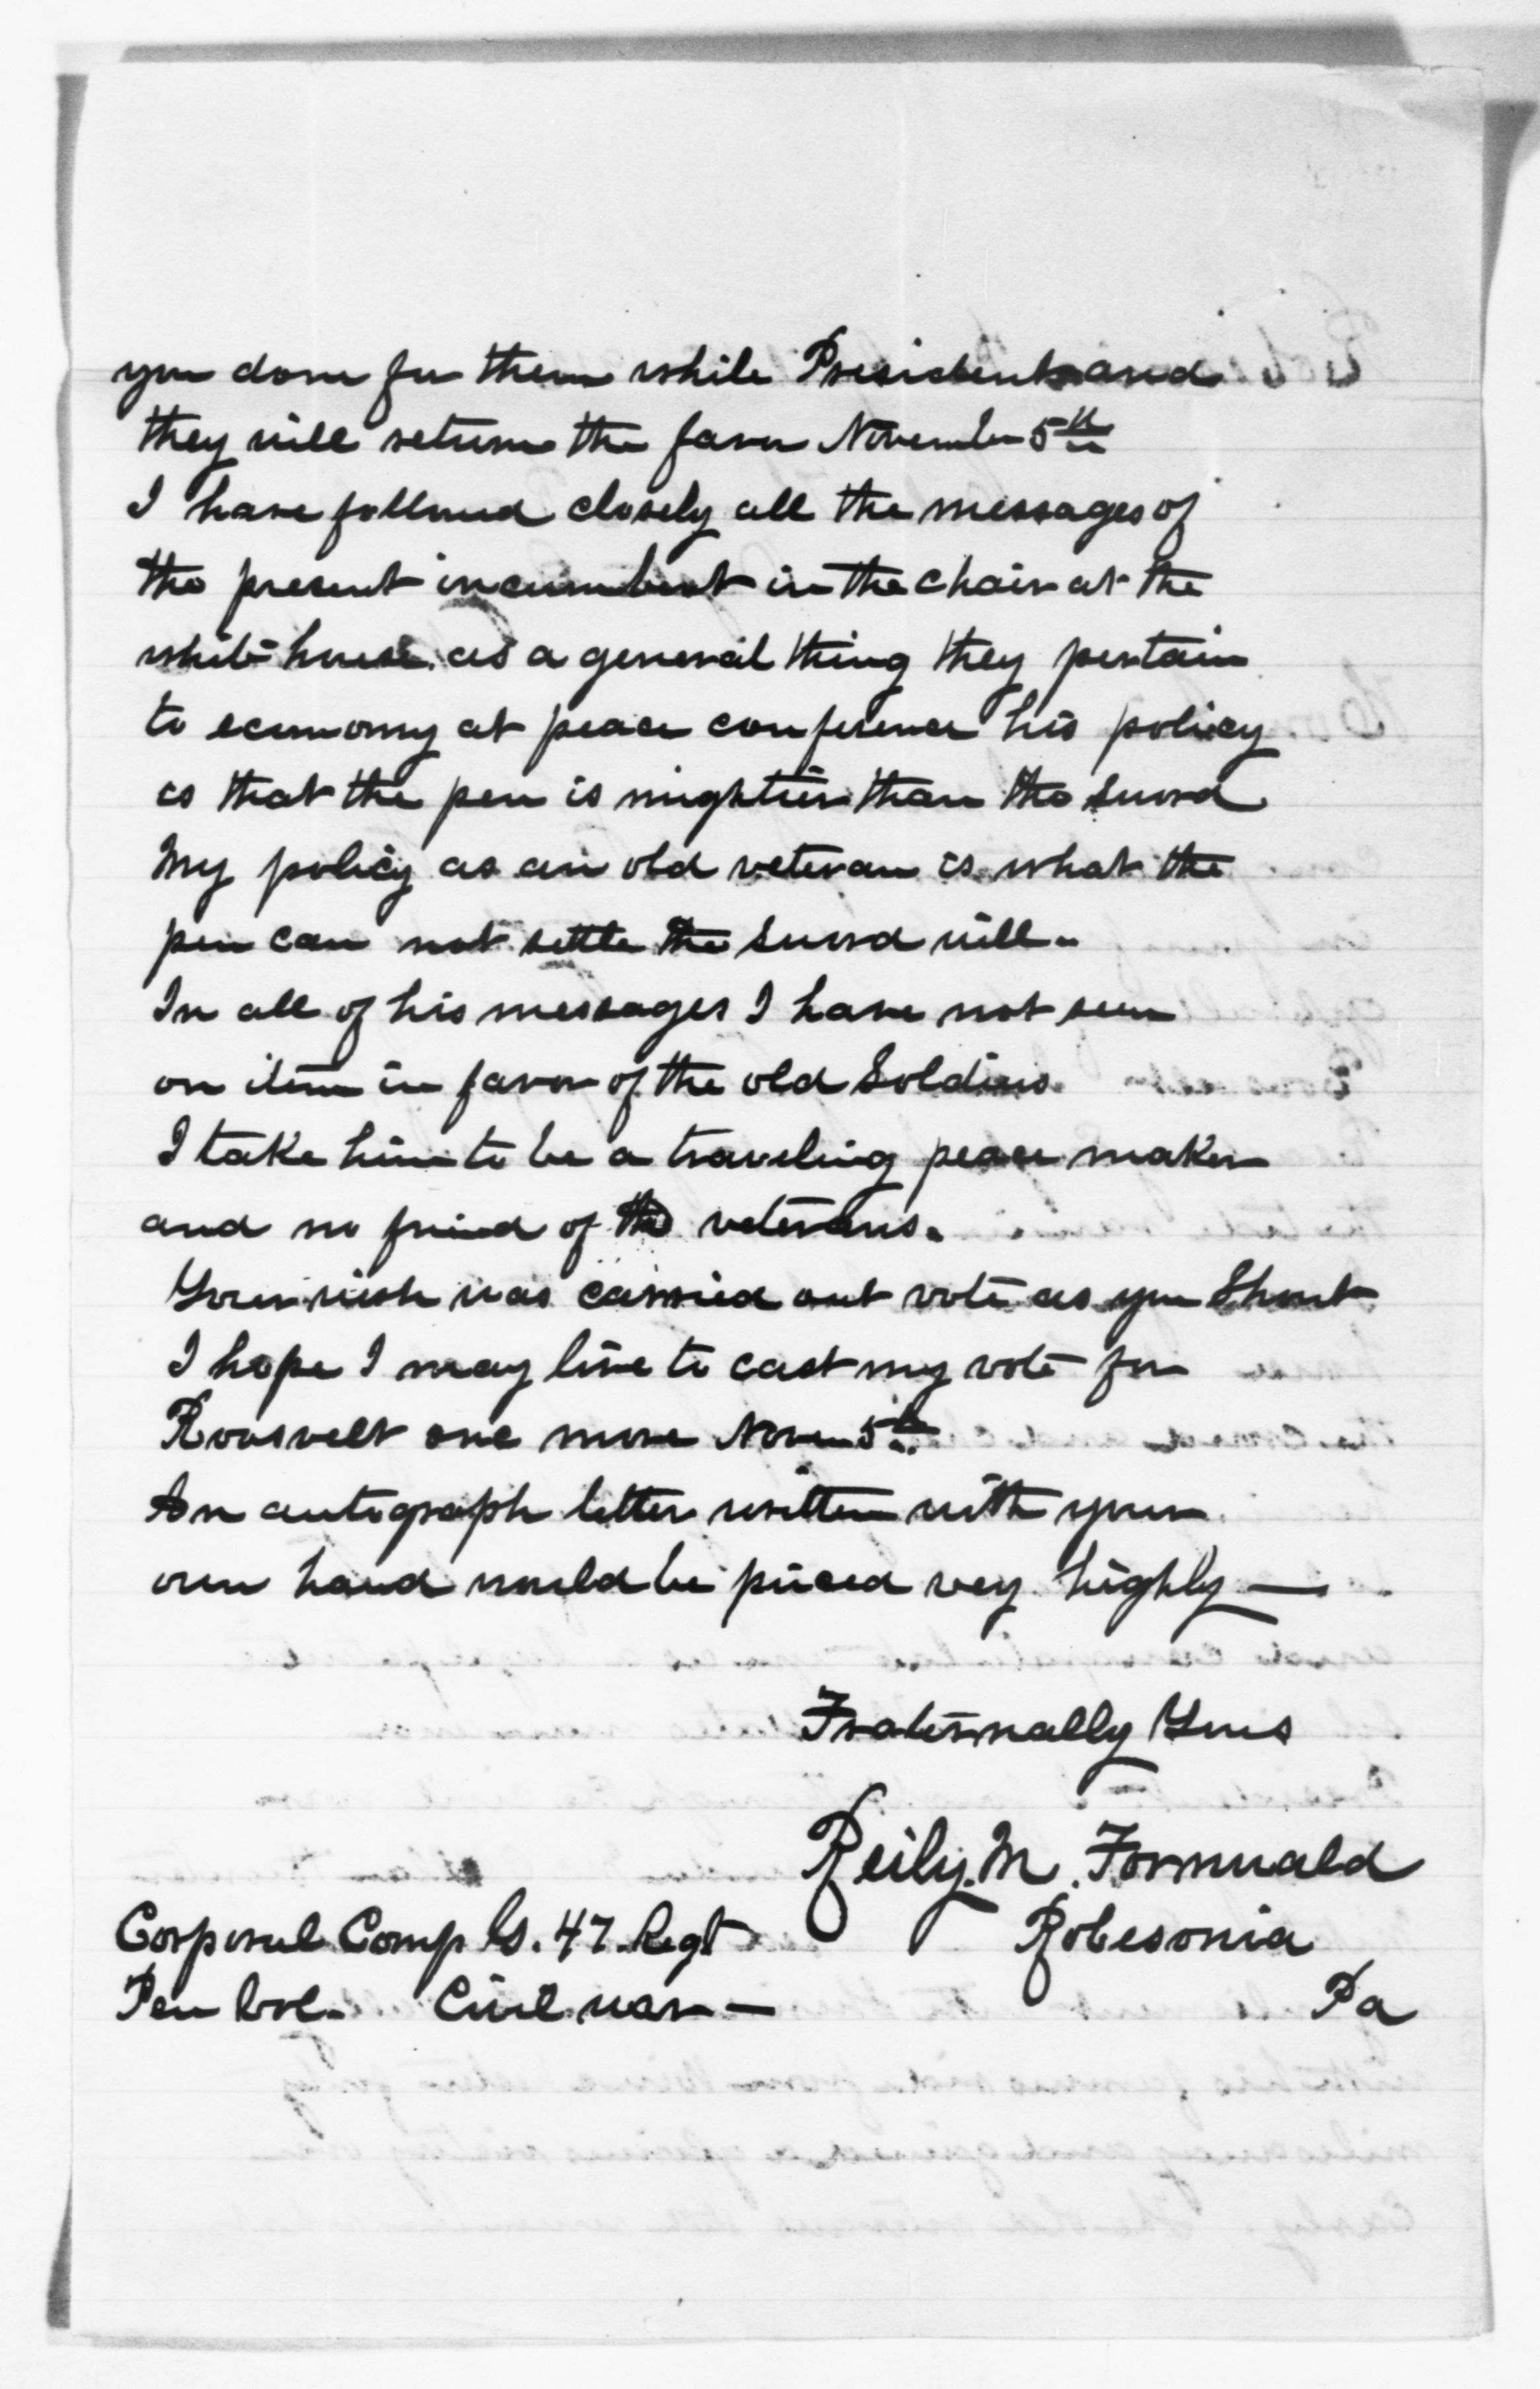 you done for them while President and
they will return the favor November 5th
I have followed closely all the messages of
the present incumbent in the chair at the
white house. as a general thing they pertain
to economy at peace conference his policy
is that the pen is mightier than the sword
My policy as an old veteran is what the
pen can not settle the sword will.
In all of his messages I have not seen
on item in favor of the old Soldiers.
I take him to be a traveling peace maker
and no friend of the veterans.
Your wish was carried out vote as you Shout
I hope I may live to cast my vote for
Roosvelt one more Novem 5th
An autograph letter written with your
own hand would be prized very highly —
Fraternally Yours
Reily. M. Fornwald
Corporal Comp G. 47. Regt
Robesonia
Pen Vol. Civil war —
Pa